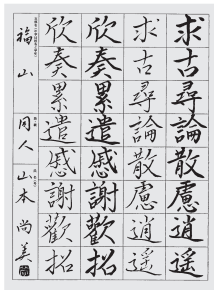 求古尋論散慮逍遥
求古尋論散慮逍遥
欣奏累遣慼謝歡招
欣奏累遣慼謝歡招
福山
同人
山本尚美